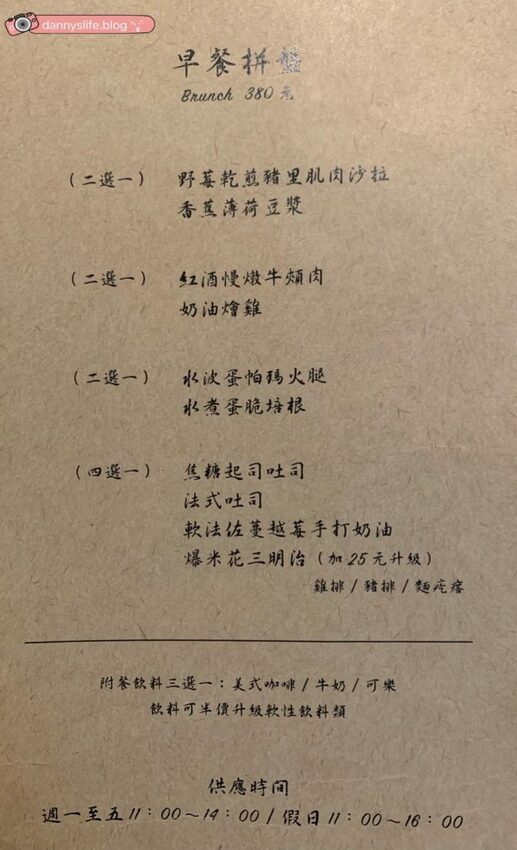 dannyslife.blog
早餐拼盤
Brunch 380元
（二選一） 野莓乾煎豬里肌肉沙拉
香蕉薄荷豆漿
（二選一） 紅酒慢燉牛頰肉
奶油燴雞
（二選一） 水波蛋帕瑪火腿
水煮蛋脆培根
（四選一） 焦糖起司吐司
法式吐司
軟法佐蔓越莓手打奶油
爆米花三明治（加25元升級）
雞排 / 豬排 / 麵疙瘩
附餐飲料三選一：美式咖啡 / 牛奶 / 可樂
飲料可半價升級軟性飲料類
供應時間
週一至五11：00~14：00 / 假日11：00~16：00